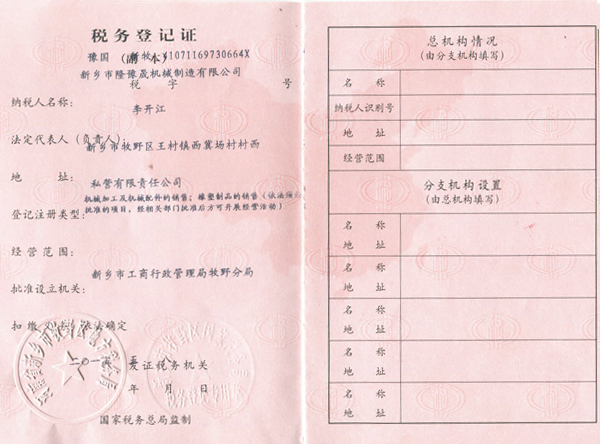 税务登记证
(副 本)
豫国 税 牧 41071169730664X
新乡市隆豫晟机械制造有限公司
税 字 号
纳税人名称:
李开江
法定代表人(负责人):
新乡市牧野区王村镇西冀场村村西
地 址:
私营有限责任公司
机械加工及机械配件的销售;橡塑制品的销售(依法须
登记注册类型:
批准的项目,经相关部门批准后方可开展经营活动)
经营范围:
新乡市工商行政管理局牧野分局
批准设立机关:
扣缴 依法确定
二〇一 发证税务机关
年 月 日
国家税务总局监制
总机构情况
(由分支机构填写)
名 称
纳税人识别号
地 址
经营范围
分支机构设置
(由总机构填写)
名 称
地 址
名 称
地 址
名 称
地 址
名 称
地 址
名 称
地 址